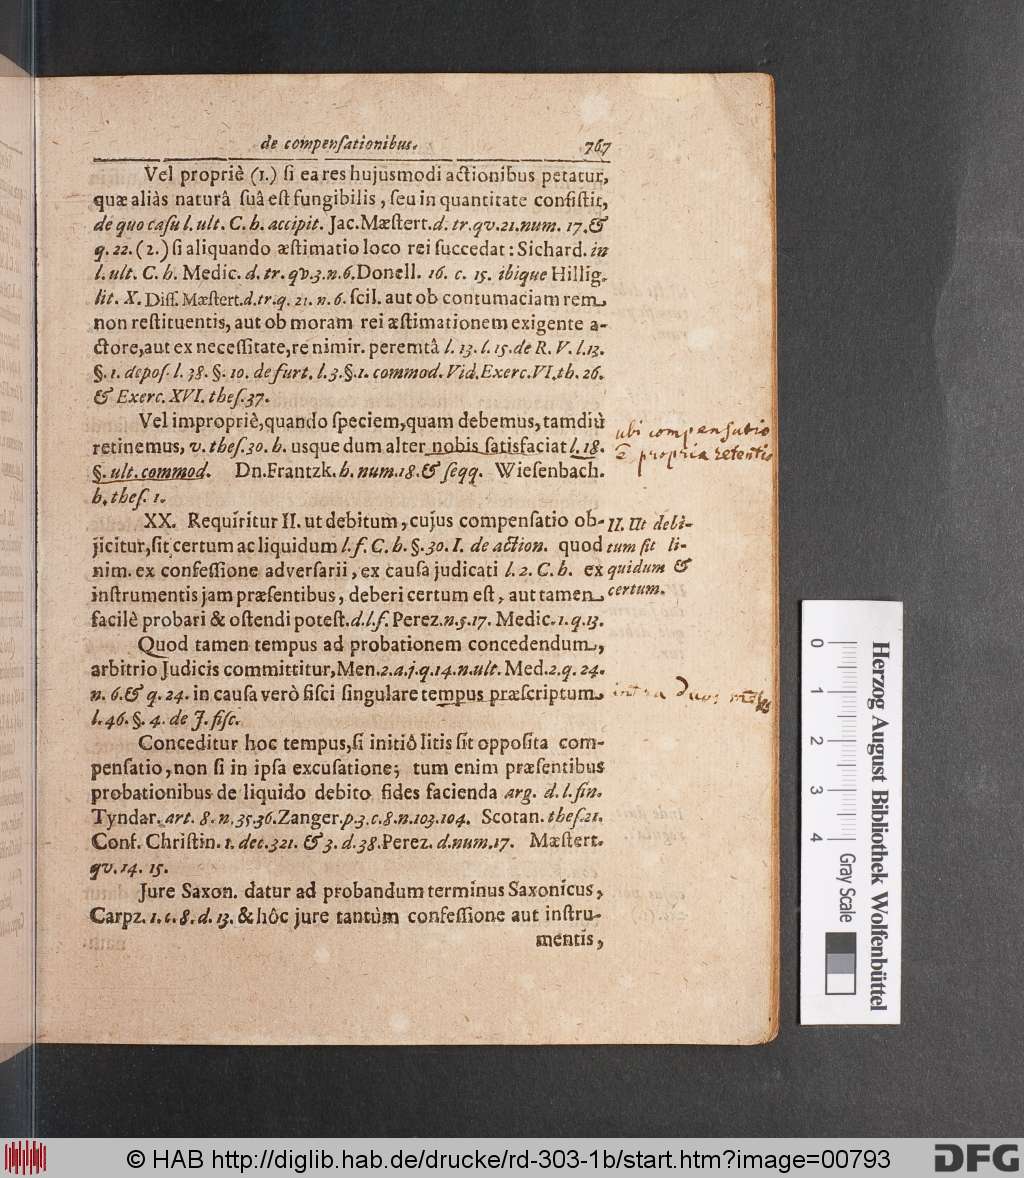 de compenſationibus. 767
Vel propriè (1.) ſi ea res hujusmodi actionibus petatur,
quæ aliàs naturâ ſuâ eſt fungibilis, ſeu in quantitate conſiſtit,
de quo caſu l. ult. C. h. accipit. Jac. Mæſtert. d. tr. qv. 21. num. 17. &
q. 22. (2.) ſi aliquando æſtimatio loco rei ſuccedat: Sichard. in
l. ult. C. h. Medic. d. tr. qv. 3. n. 6. Donell. 16. c. 15. ibique Hillig.
lit. X. Diſſ. Mæſtert. d. tr. q. 21. n. 6. ſcil. aut ob contumaciam rem
non reſtituentis, aut ob moram rei æſtimationem exigente a-
ctore, aut ex neceſſitate, re nimir. peremtâ l. 13. l. 15. de R. V. l. 13.
§. 1. depoſ. l. 38. §. 10. de furt. l. 3. §. 1. commod. Vid. Exerc. VI. th. 26.
& Exerc. XVI. theſ. 37.
Vel impropriè, quando ſpeciem, quam debemus, tamdiù
retinemus, v. theſ. 30. h. usque dum alter nobis ſatisfaciat l. 18.
§. ult. commod. Dn. Frantzk. h. num. 18. & ſeqq. Wieſenbach.
h. theſ. 1.
ubi compensatio
propria retentio
XX. Requiritur II. ut debitum, cujus compenſatio ob-
jicitur, ſit certum ac liquidum l. f. C. h. §. 30. I. de action. quod
nim. ex confeſſione adverſarii, ex cauſa judicati l. 2. C. h. ex
inſtrumentis jam præſentibus, deberi certum eſt, aut tamen
facilè probari & oſtendi poteſt. d. l. f. Perez. n. 5. 17. Medic. 1. q. 13.
II. Ut debi-
tum ſit li-
quidum &
certum.
Quod tamen tempus ad probationem concedendum,
arbitrio Judicis committitur, Men. 2. a. j. q. 14. n. ult. Med. 2. q. 24.
n. 6. & q. 24. in cauſa verò fiſci ſingulare tempus præſcriptum
l. 46. §. 4. de J. fiſc.
intra duos
Conceditur hoc tempus, ſi initiô litis ſit oppoſita com-
penſatio, non ſi in ipſa excuſatione; tum enim præſentibus
probationibus de liquido debito fides facienda arg. d. l. fin.
Tyndar. art. 8. n. 35. 36. Zanger. p. 3. c. 8. n. 103. 104. Scotan. theſ. 21.
Conf. Chriſtin. 1. dec. 321. & 3. d. 38. Perez. d. num. 17. Mæſtert.
qv. 14. 15.
Jure Saxon. datur ad probandum terminus Saxonicus,
Carpz. 1. c. 8. d. 13. & hôc jure tantùm confeſſione aut inſtru-
mentis,
0 1 2 3 4
Gray Scale
Herzog August Bibliothek Wolfenbüttel
© HAB http://diglib.hab.de/drucke/rd-303-1b/start.htm?image=00793
DFG